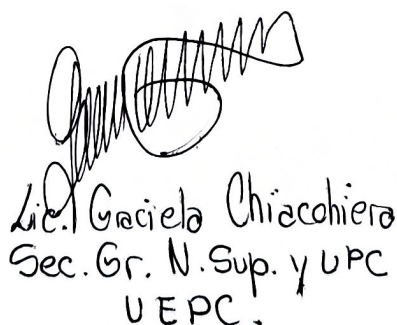 Lic. Graciela Chiacohiera
Sec. Gr. N. Sup. y UPC
UEPC.